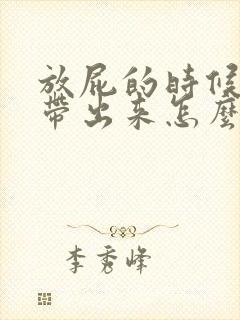 放屁的時候
帶出来怎麼
李秀峰